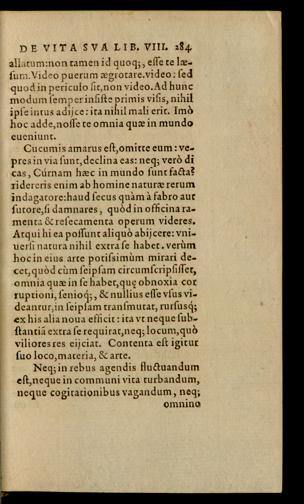 DE VITA SVA LIB. VIII. 284
allatum: non tamen id quoq;, esse te læ-
sum. Video puerum ægrotare. video: sed
quod in periculo sit, non video. Ad hunc
modum semper insiste primis visis, nihil
ipse intus adijce: ita nihil mali erit. Imò
hoc adde, nosse te omnia quæ in mundo
eueniunt.
Cucumis amarus est, omitte eum: ve-
pres in via sunt, declina eas: neq; verò di
cas, Cúrnam hæc in mundo sunt facta?
ridereris enim ab homine naturæ rerum
indagatore: haud secus quàm à fabro aut
sutore, si damnares, quòd in officina ra-
menta & resecamenta operum videres.
Atqui hi ea possunt aliquò abijcere: vni-
uersi natura nihil extra se habet. verùm
hoc in eius arte potissimùm mirari de-
cet, quòd cùm seipsam circumscripsisset,
omnia quæ in se habet, quę obnoxia cor
ruptioni, senioq;, & nullius esse vsus vi-
deantur, in seipsam transmutat, rursusq;
ex his alia noua efficit: ita vt neque sub-
stantiā extra se requirat, neq; locum, quò
viliores res eijciat. Contenta est igitur
suo loco, materia, & arte.
Neq; in rebus agendis fluctuandum
est, neque in communi vita turbandum,
neque cogitationibus vagandum, neq;
omnino